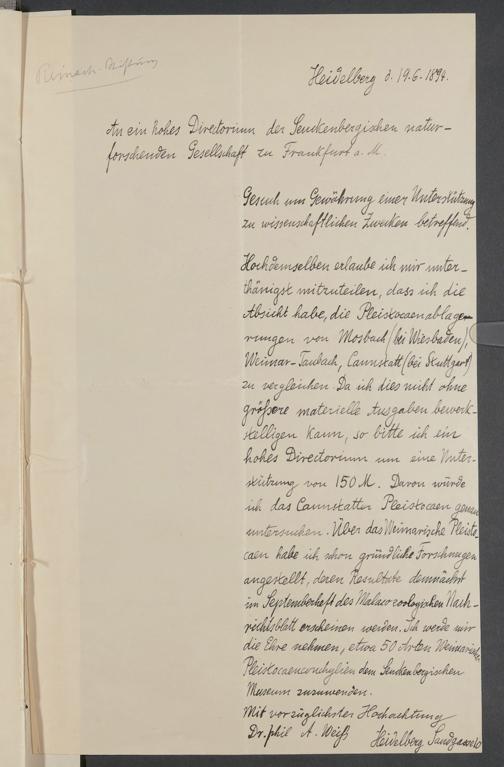 Reinach-Stiftung
Heidelberg d. 19.6.1894.
An ein hohes Directorium der Senckenbergischen natur-
forschenden Gesellschaft zu Frankfurt a. M.
Gesuch um Gewährung einer Unterstützung
zu wissenschaftlichen Zwecken betreffend.
Hochdemselben erlaube ich mir unter-
thänigst mitzuteilen, dass ich die
Absicht habe, die Pleistocaenablage-
rungen von Mosbach (bei Wiesbaden),
Weimar-Taubach, Cannstatt (bei Stuttgart)
zu vergleichen. Da ich dies nicht ohne
größere materielle Ausgaben bewerk-
stelligen kann, so bitte ich ein
hohes Directorium um eine Unter-
stützung von 150 M. Davon würde
ich das Cannstatter Pleistocaen genau
untersuchen. Über das Weimarische Pleisto-
caen habe ich schon gründliche Forschungen
angestellt, deren Resultate demnächst
im Septemberheft des Malacozoologischen Nach-
richtsblatt erscheinen werden. Ich werde mir
die Ehre nehmen, etwa 50 Arten Weimarischer
Pleistocaenconchylien dem Senckenbergischen
Museum zuzuwenden.
Mit vorzüglichster Hochachtung
Dr. phil A. Weiß Heidelberg Sandgasse